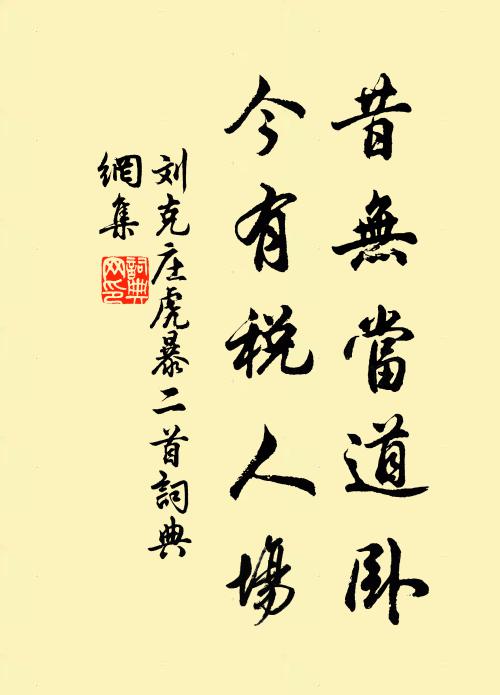 昔無當道卧
今有税人場
刘克庄虎暴二首詞典
網集
詞典網印